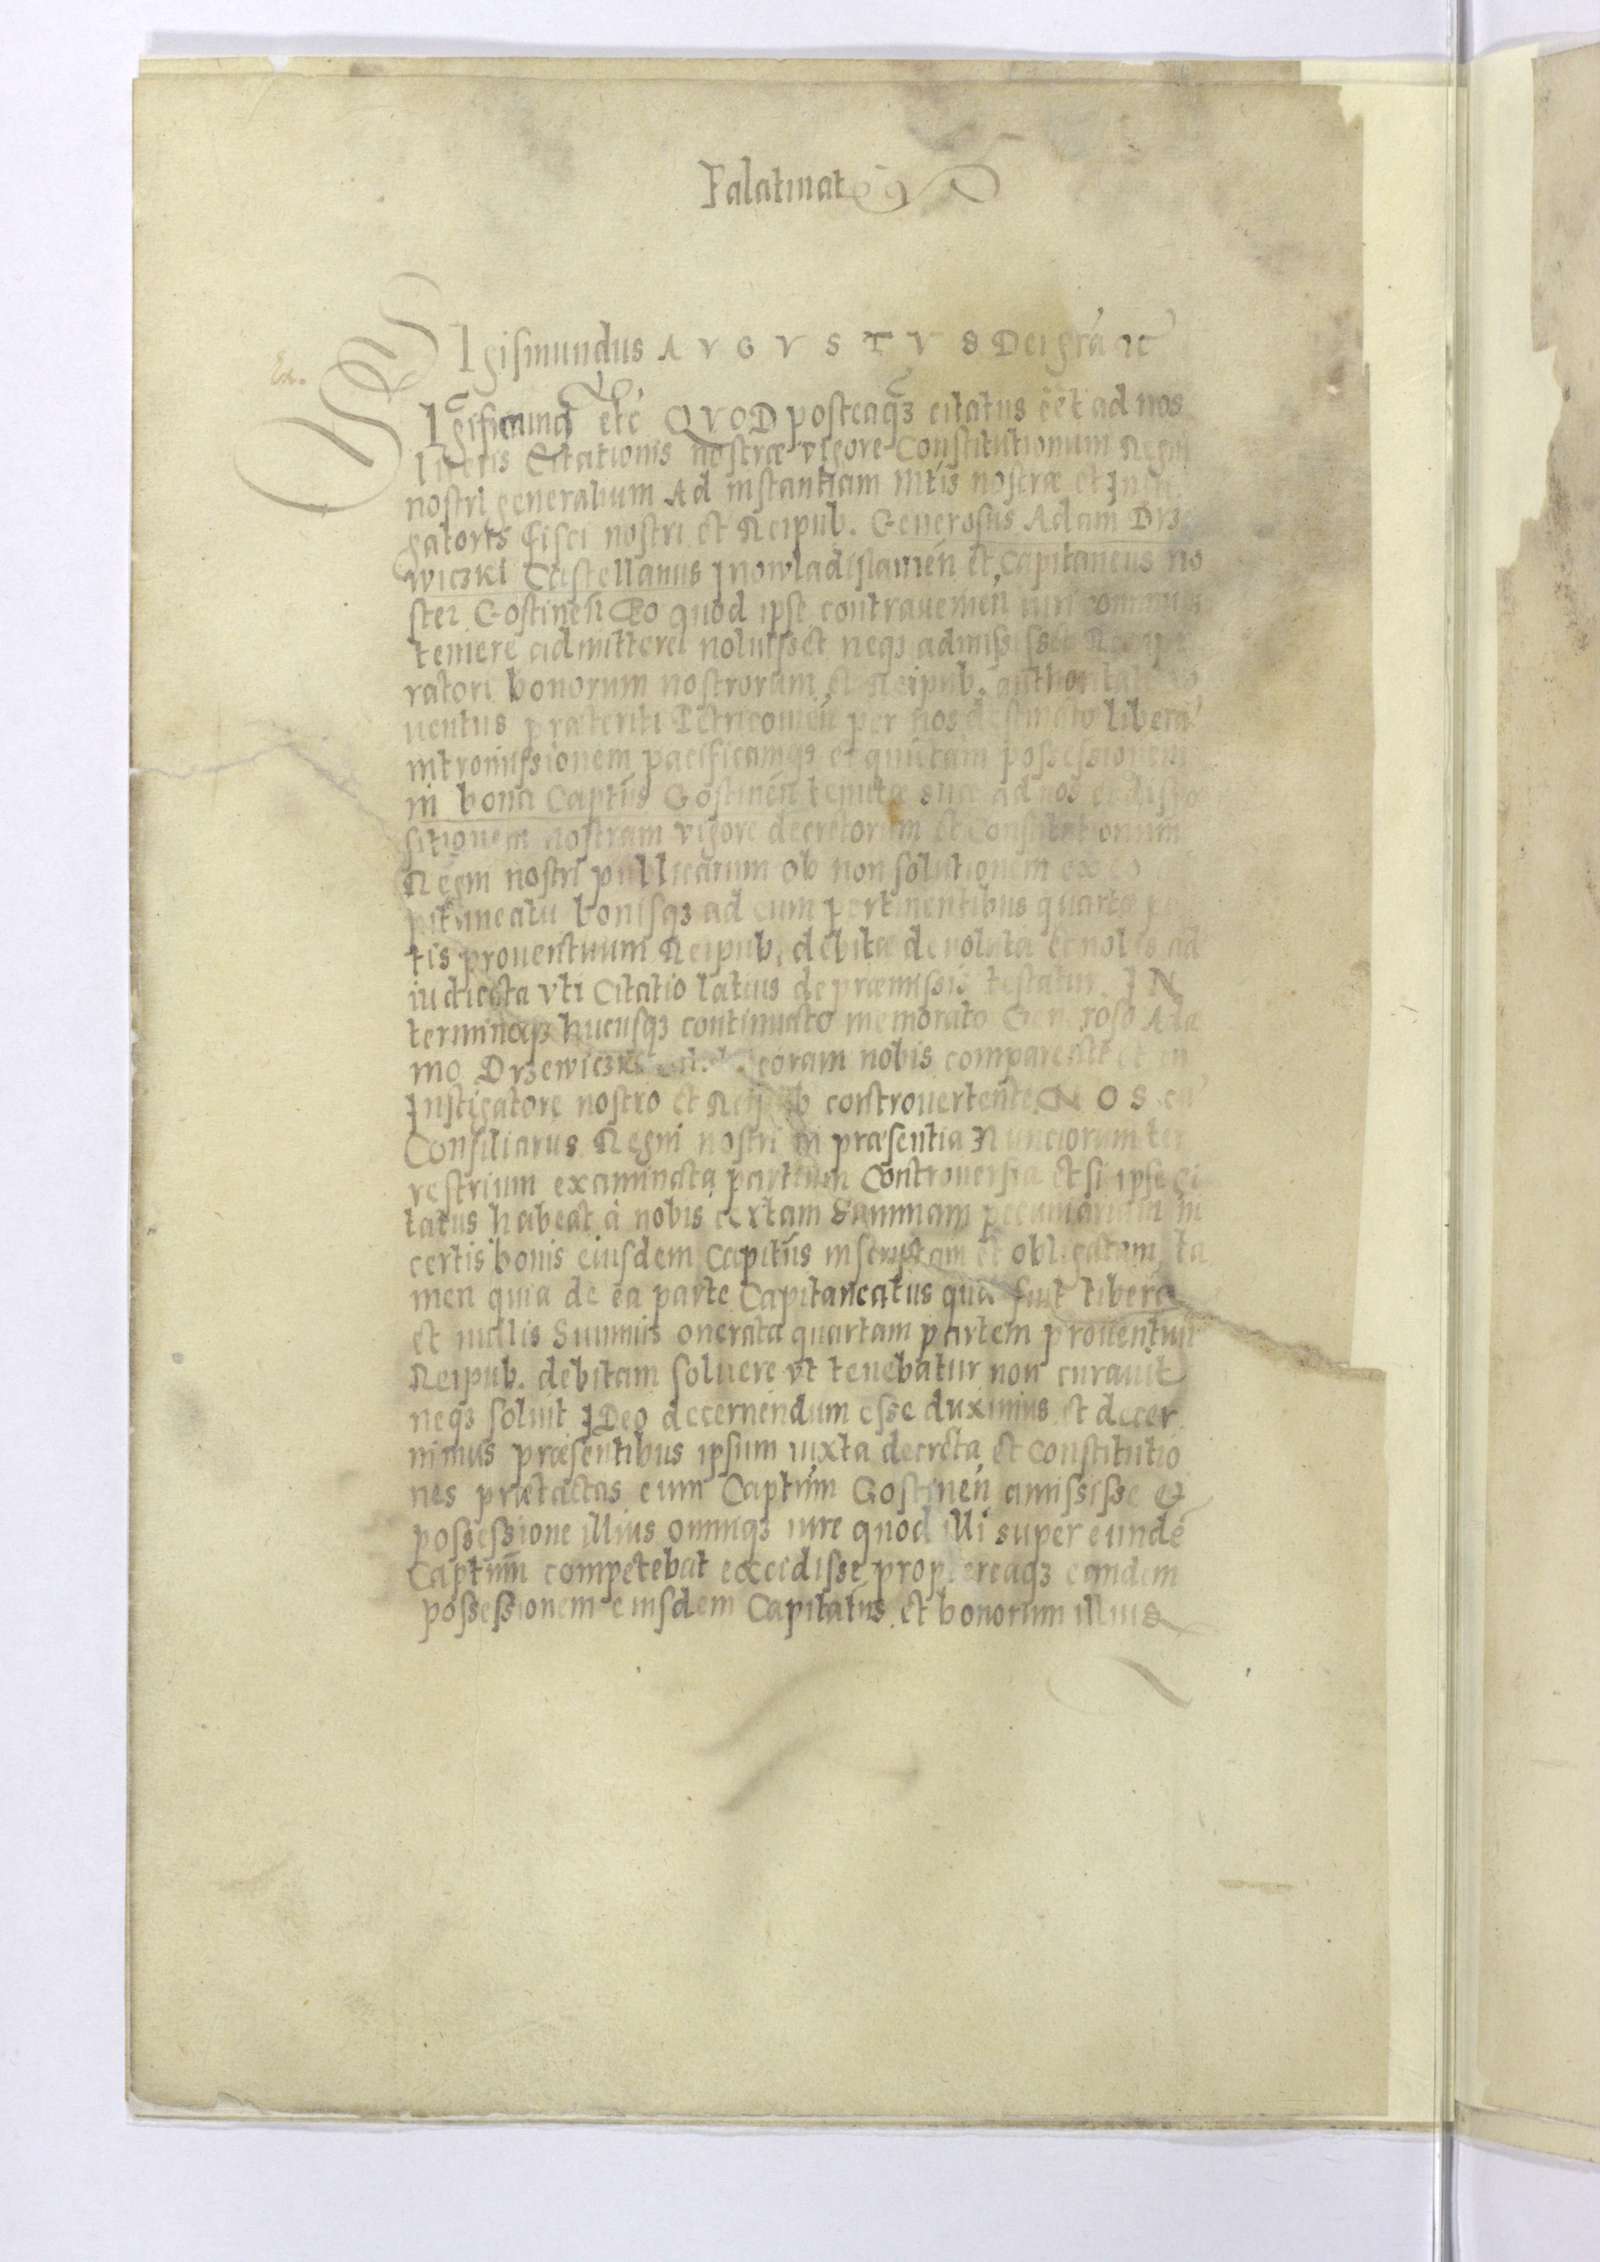 Palatinat
SIgismundus AVGVSTVS Dei gra ꝛc
Significamus etc QVOD posteaqȝ citatus eēt ad nos
literis Citationis nostræ vigore Constitutionum Regni
nostri generalium Ad instantiam Mtis nostræ et Insti
gatoris fisci nostri et Reipub. Generosus Adam Drze
wiczki Castellanus Jnowladislauien̄ et Capitaneus no
ster Gostinen̄ Eo quod ipse contrauenien̄ iuri communi
temere admittere noluisset neqȝ admisisset Recupe
ratori bonorum nostrorum et Reipub. authoritate Co
uentus præteriti Petricouien̄ per nos destinato liberā
intromissionem pacificamqȝ et quietam possessionem
in bona Captūs Gostinen̄ tenutæ suæ ad nos et dispo
sitionem nostram vigore decretorum et Constitutionum
Regni nostri publicarum ob non solutionem ex eo Ca
pitaneatu bonisqȝ ad eum pertinentibus quartæ par
tis prouentuum Reipub. debitæ deuoluta et nobis ad
iudicata vti Citatio latius de præmissis testatur. IN
terminoqȝ hucusqȝ continuato memorato Generoso Ada
mo Drzewiczki coram nobis comparente et cū
Instigatore nostro et Reipub controuertente NOS cū
Consiliarus Regni nostri in præsentia Nunciorum ter
restrium examinata partium Controuersia etsi ipse ci
tatus habeat à nobis certam Summam pecuniariam in
certis bonis eiusdem Capitūs inscriptam et obligatam, ta
men quia de ea parte Capitaneatus quæ fuit libera
et nullis Summis onerata quartam partem prouentuū
Reipub. debitam soluere vt tenebatur non curauit
neqȝ soluit IDeo decernendum esse duximus et decer
nimus præsentibus ipsum iuxta decreta et Constitutio
nes prætactas eum Captum̄ Gostinen̄ amisisse &
possessione illius omniqȝ iure quod illi super eundē
Captum̄ competebat excidisse proptereaqȝ eandem
possessionem eiusdem Capitatus et bonorum illius